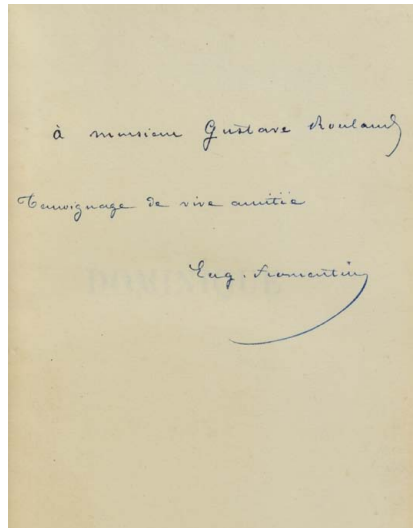 à monsieur Gustave Rouland
Témoignage de vive amitié
Eug. Fromentin
DOMINIQUE